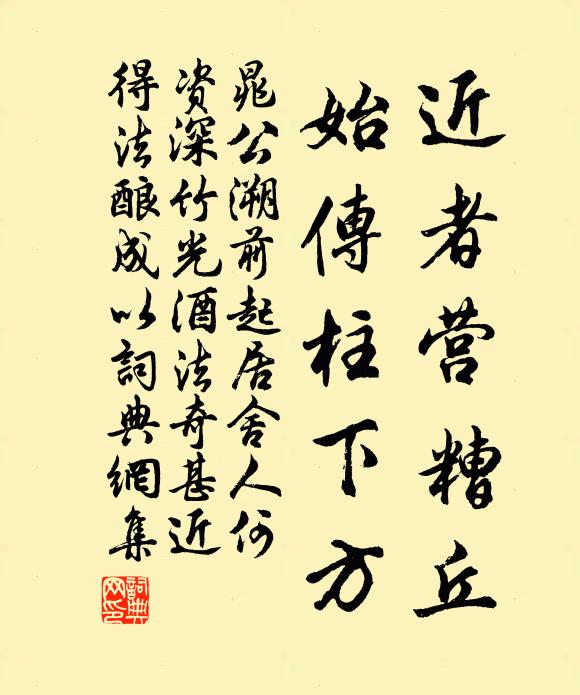 近者营糟丘
始傳柱下方
晁公溯前起居舍人何
资深竹光酒法奇甚近
得法酿成以詞典網集
詞典
网印